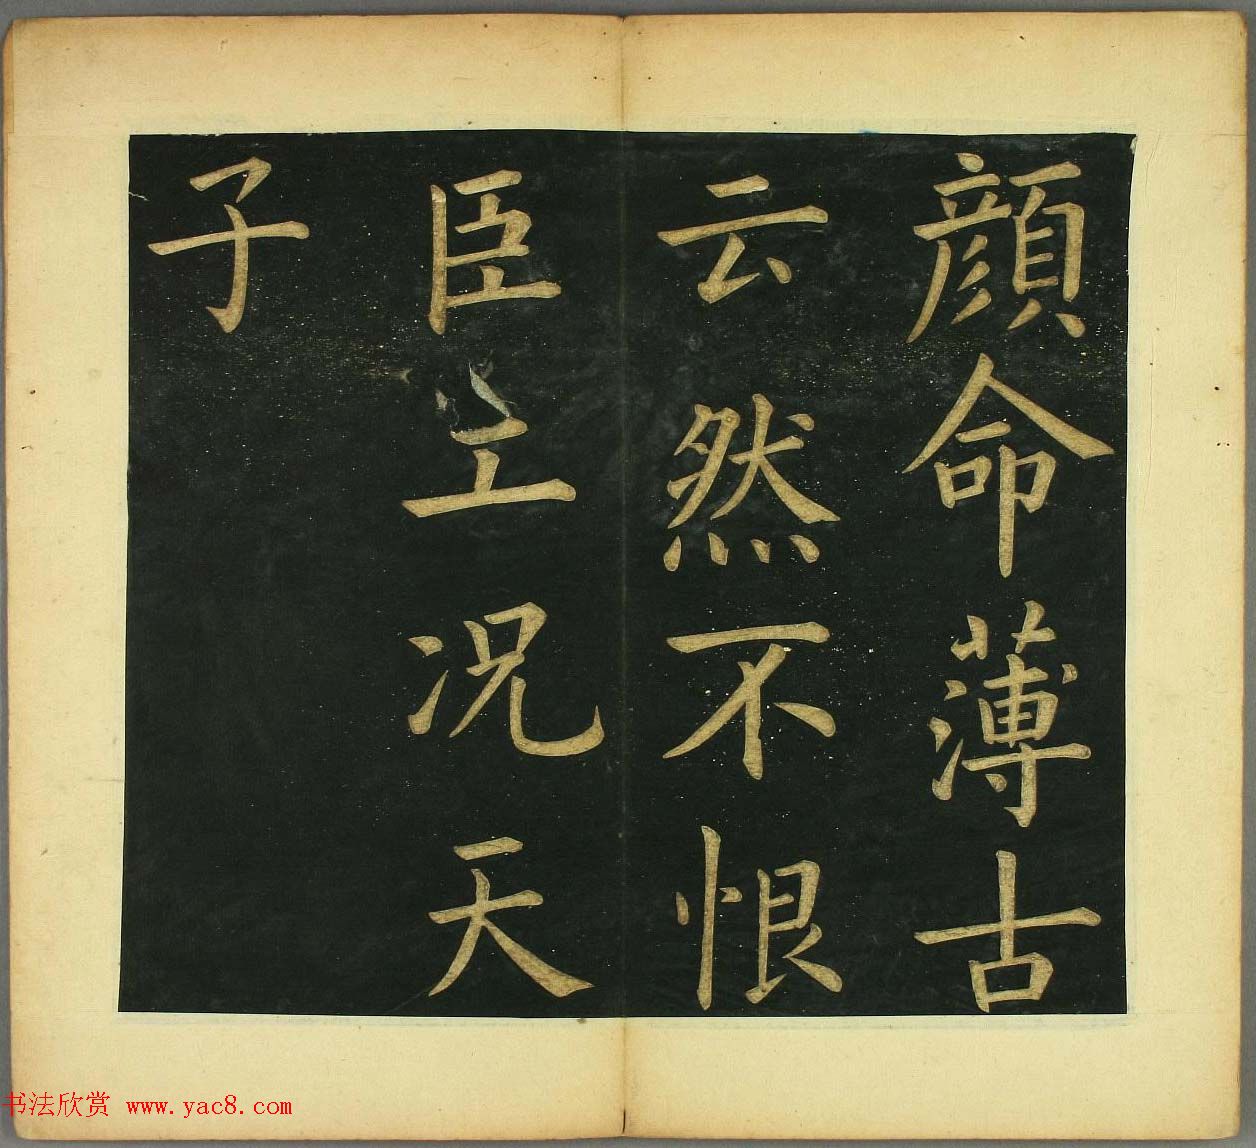 顔命薄古
云然不恨
臣工况天
子
书法欣赏 www.yac8.com